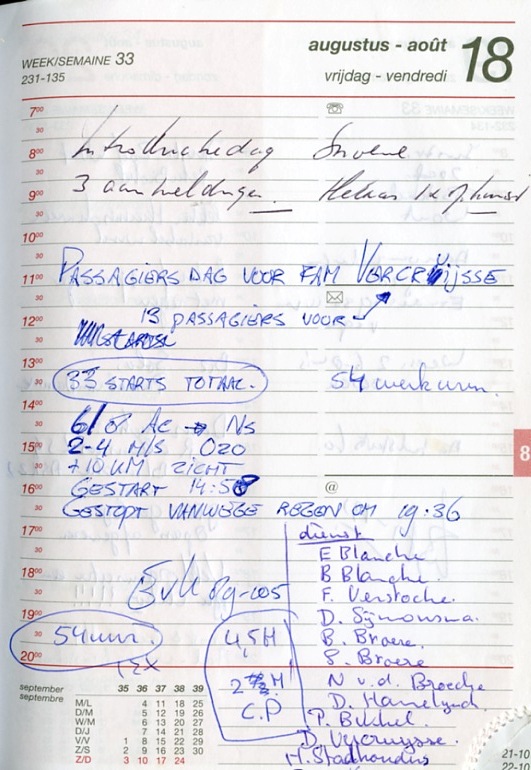 WEEK/SEMAINE 33
231-135
augustus - août
vrijdag - vendredi
18
7⁰⁰
30
8⁰⁰ Introductiedag
30
9⁰⁰ 3 aanmeldingen. Helaas 1x
30
10⁰⁰
30
11⁰⁰ PASSAGIERS DAG VOOR FAM VERCRUIJSSE
30
12⁰⁰ 13 PASSAGIERS VOOR
30
13⁰⁰
30 33 STARTS TOTAAL. 54 werkuren.
14⁰⁰
30 6/8 AC → NS
15⁰⁰ 2-4 M/S O20
30 +10 KM ZICHT
16⁰⁰ GESTART 14:58 @
30 GESTOPT VANWEGE REGEN OM 19:36
17⁰⁰ dienst
30 E Blanche
18⁰⁰ B Blanche
30 F. Verstoche.
19⁰⁰ D.
30 54 uur. 4,5H B. Broere.
20⁰⁰ S. Broere
12x
2 H N v.d. Broecke
C.P D.
P.
D. Vercruysse.
M. Stadhouders
8
september
septembre
35 36 37 38 39
M/L 4 11 18 25
D/M 5 12 19 26
W/M 6 13 20 27
D/J 7 14 21 28
V/V 1 8 15 22 29
Z/S 2 9 16 23 30
Z/D 3 10 17 24
21-10
22-10